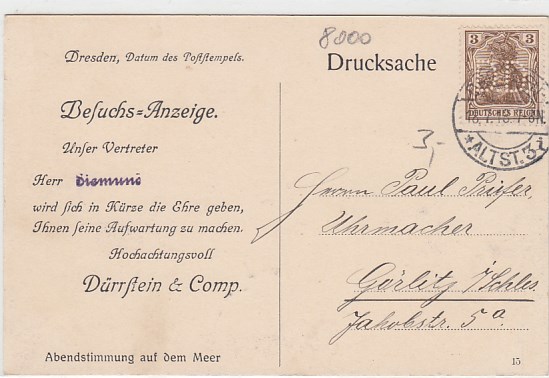 8000
Dresden, Datum des Poststempels.
Drucksache
3 3
DEUTSCHES REICH
*ALTST. 3 i
3,-
Besuchs=Anzeige.
Unser Vertreter
Herr Diemund
wird sich in Kürze die Ehre geben,
Ihnen seine Aufwartung zu machen.
Hochachtungsvoll
Dürrstein & Comp.
Herrn Paul Prüfer,
Uhrmacher
Görlitz i/Schles
Jakobstr. 5a.
Abendstimmung auf dem Meer
15